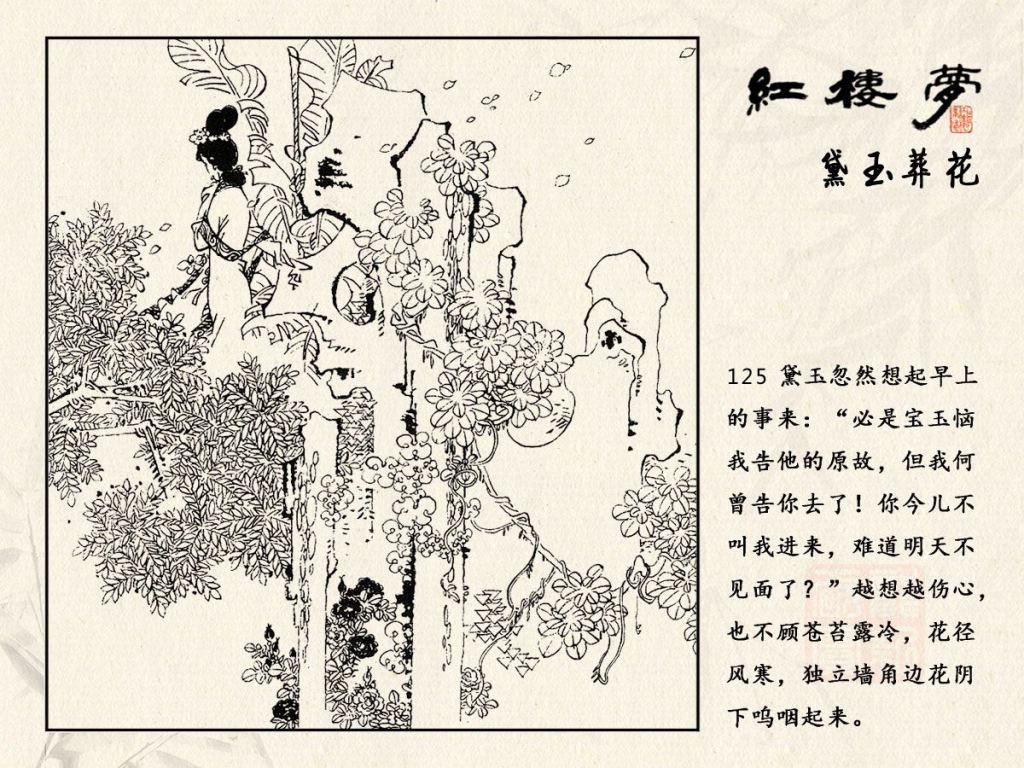 紅樓夢
黛玉葬花
125 黛玉忽然想起早上
的事来：“必是宝玉恼
我告他的原故，但我何
曾告你去了！你今儿不
叫我进来，难道明天不
见面了？”越想越伤心，
也不顾苍苔露冷，花径
风寒，独立墙角边花阴
下呜咽起来。